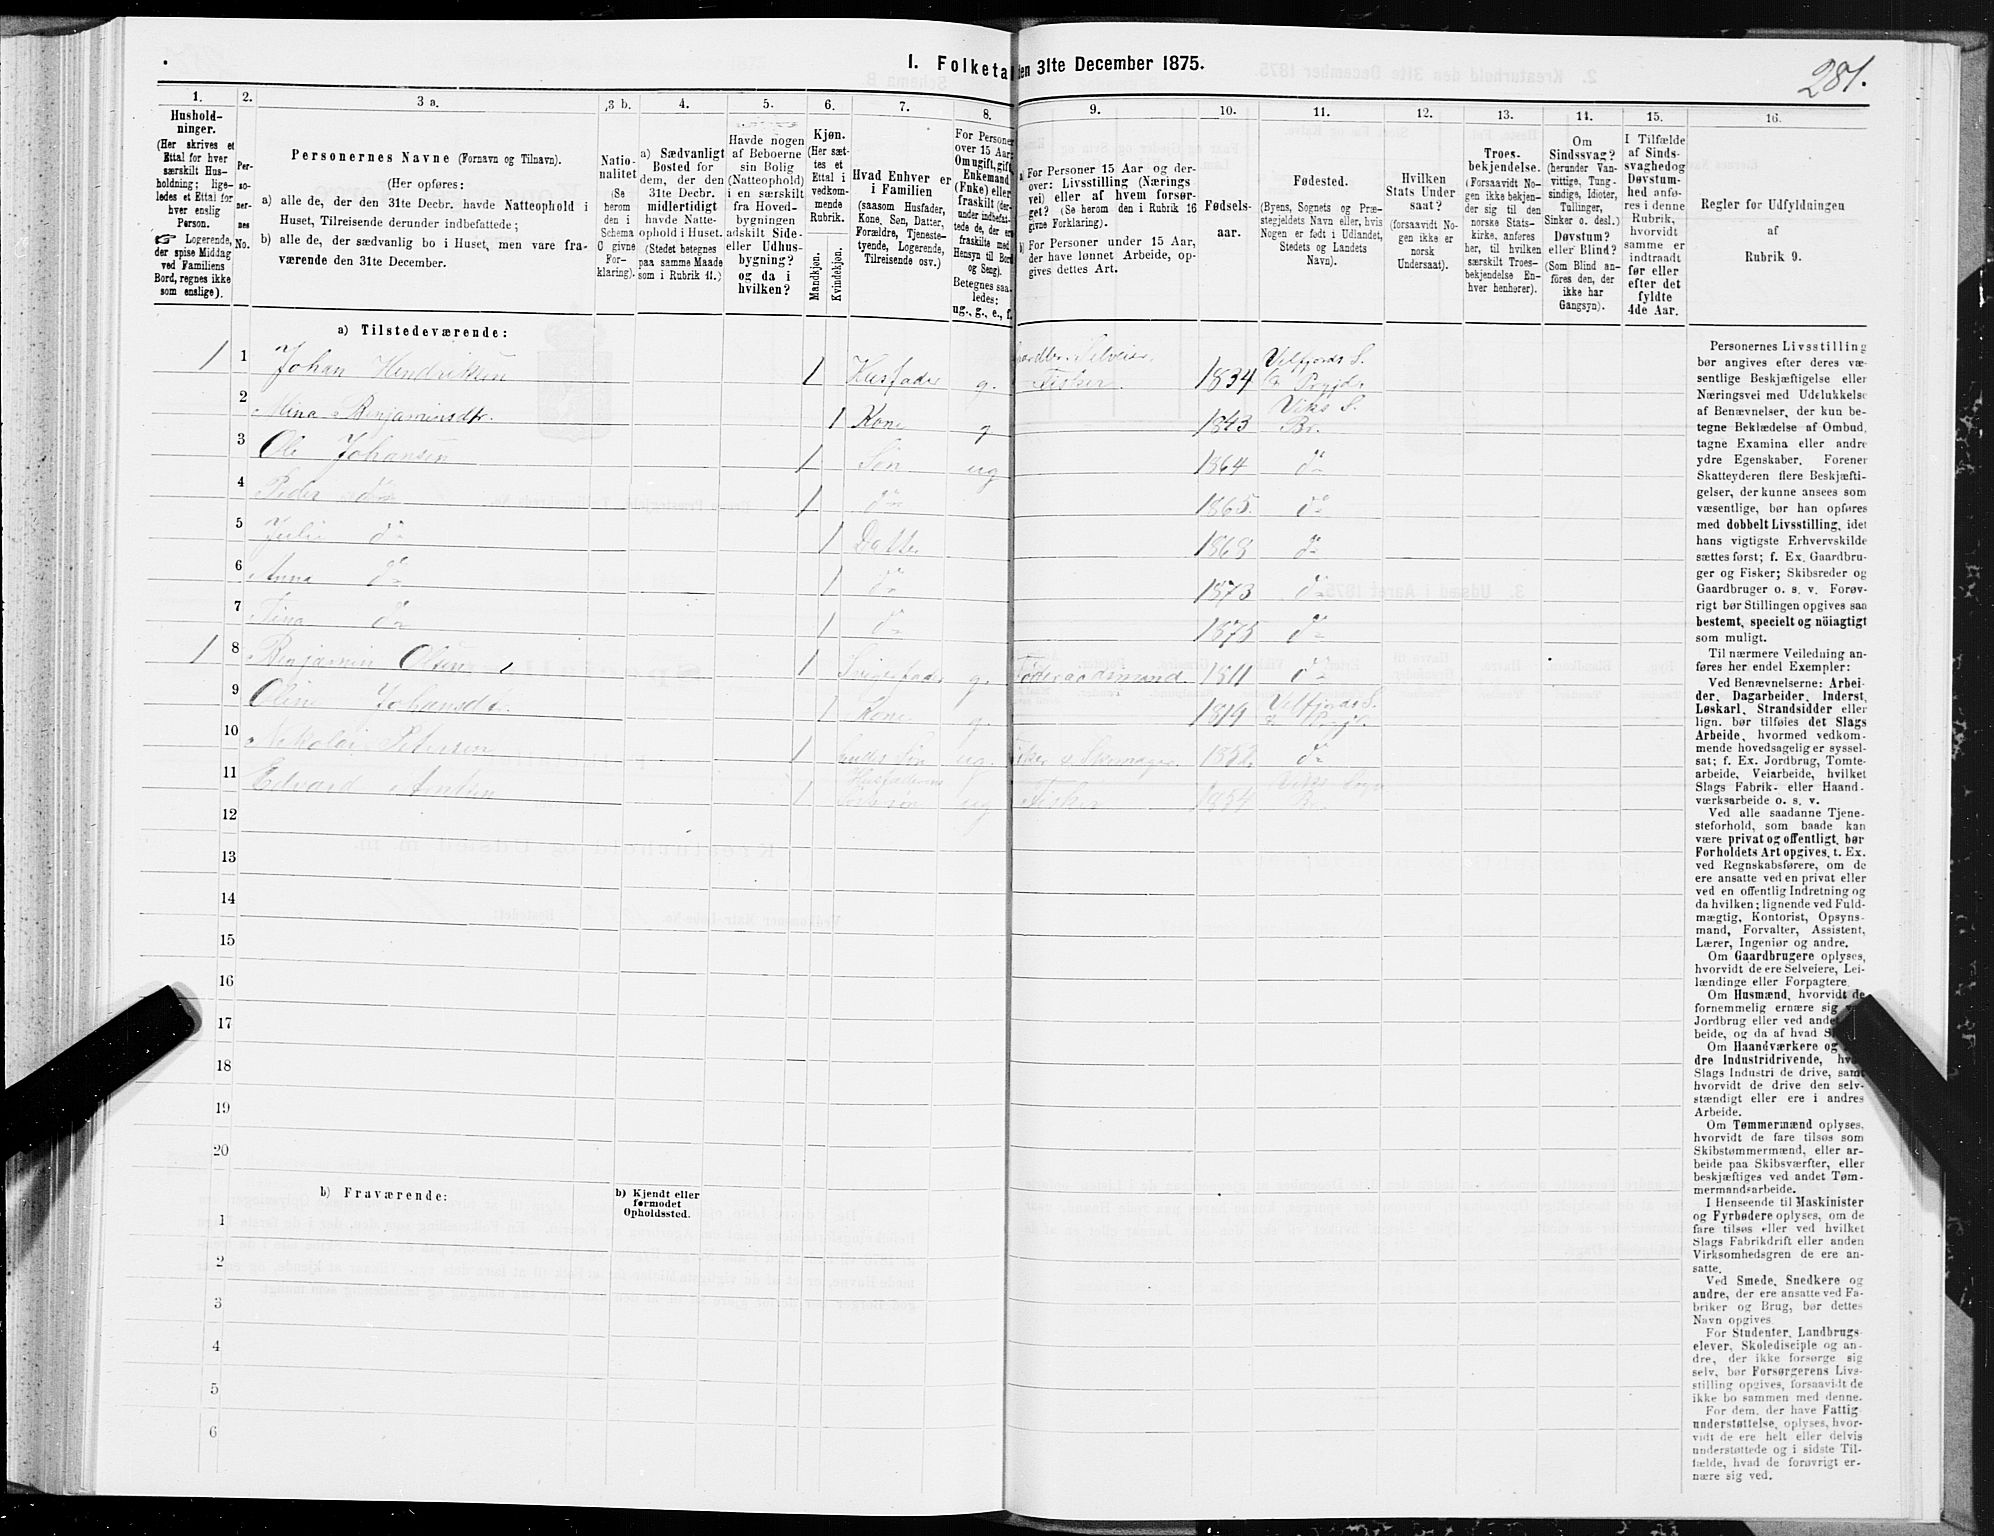 281.
1. Folketal den 31te December 1875.
1. 2. 3 a. 3 b. 4. 5. 6. 7. 8. 9. 10. 11. 12. 13. 14. 15. 16.
Husholdninger.
(Her skrives et Ettal for hver særskilt Husholdning; ligeledes et Ettal for hver enslig Person.
☞ Logerende, der spise Middag ved Familiens Bord, regnes ikke som enslige).
Personernes No.
Personernes Navne (Fornavn og Tilnavn).
(Her opføres:
a) alle de, der den 31te Decbr. havde Natteophold i Huset, Tilreisende derunder indbefattede;
b) alle de, der sædvanlig bo i Huset, men vare fraværende den 31te December.
Nationalitet
(Se herom den i Schema C givne Forklaring).
a) Sædvanligt Bosted for dem, der den 31te Decbr. midlertidigt havde Natteophold i Huset.
(Stedet betegnes paa samme Maade som i Rubrik 11.)
Havde nogen af Beboerne sin Bolig (Natteophold) i en særskilt fra Hovedbygningen adskilt Side- eller Udhusbygning? og da i hvilken?
Kjøn.
(Her sættes et Ettal i vedkommende Rubrik.
Mandkjøn. Kvindekjøn.
Hvad Enhver er i Familien
(saasom Husfader, Kone, Søn, Datter, Forældre, Tjenestetyende, Logerende, Tilreisende osv.)
For Personer over 15 Aar: Om ugift, gift, Enkemand (Enke) eller fraskilt
Betegnes saaledes: ug., g., e., f.
a) For Personer 15 Aar og derover: Livsstilling (Næringsvei) eller af hvem forsørget? (Se herom den i Rubrik 16 givne Forklaring).
b) For Personer under 15 Aar, der have lønnet Arbeide, opgives dettes Art.
Fødselsaar.
Fødested.
(Byens, Sognets og Præstegjeldets Navn eller, hvis Nogen er født i Udlandet, Stedets og Landets Navn).
Hvilken Stats Undersaat?
(forsaavidt Nogen ikke er norsk Undersaat).
Troesbekjendelse.
(Forsaavidt Nogen ikke bekjender sig til den norske Statskirke, anføres her, til hvilken særskilt Troesbekjendelse Enhver henhører).
Om Sindssvag? (herunder Vanvittige, Tungsindige, Idioter, Tullinger, Sinker o. desl.) Døvstum? eller Blind? (Som Blind anføres den, der ikke har Gangsyn).
I Tilfælde af Sindssvaghed og Døvstumhed anføres i denne Rubrik, hvorvidt samme er indtraadt før eller efter det fyldte 4de Aar.
Regler for Udfyldningen af Rubrik 9.
a) Tilstedeværende:
1 1 Johan Hendriksen 1 Husfader g. Selveier, Fisker. 1834 Velfjords S. Prgjld
2 Mina Benjaminsdtr. 1 Kone g 1843 Viks S. Br.
3 Ole Johansen 1 Søn ug 1864 do
4 Peder do 1 do 1865 do
5 Julie do 1 Datter 1868 do
6 Anna do 1 do 1873 do
7 Tina do 1 do 1875 do
1 8 Benjamin Olsen 1 Svigerfader g. Føderaadsmand 1811 do
9 Oline Johansdtr. 1 Kone g. 1819 Velfjords S. Prgjl.
10 Nikolai Petersen 1 Søn ug. Fisker & Skomager. 1852 do
11 Edvard Antun 1 Husfaderens ug Fisker 1854 Br.
12
13
14
15
16
17
18
19
20
b) Fraværende: b) Kjendt eller formodet Opholdssted.
1
2
3
4
5
6
Personernes Livsstilling
bør angives efter deres væ-
sentlige Beskjæftigelse eller
Næringsvei med Udelukkelse
af Benævnelser, der kun be-
tegne Beklædelse af Ombud,
tagne Examina eller andre
ydre Egenskaber. Forener
Skatteyderen flere Beskjæfti-
gelser, der kunne ansees som
væsentlige, bør han opføres
med dobbelt Livsstilling, idet
hans vigtigste Erhvervskilde
sættes først; f. Ex. Gaardbru-
ger og Fisker; Skibsreder og
Gaardbruger o. s. v. Forøv-
rigt bør Stillingen opgives saa
bestemt, specielt og nöiagtigt
som muligt.
Til nærmere Veiledning an-
føres her endel Exempler:
Ved Benævnelserne: Arbei-
der, Dagarbeider, Inderst,
Løskarl, Strandsidder eller
lign. bør tilføies det Slags
Arbeide, hvormed vedkom-
mende hovedsagelig er syssel-
sat; f. Ex. Jordbrug, Tomte-
arbeide, Veiarbeide, hvilket
Slags Fabrik- eller Haand-
værksarbeide o. s. v.
Ved alle saadanne Tjene-
steforhold, som baade kan
være privat og offentligt, bør
Forholdets Art opgives, t. Ex.
ved Regnskabsførere, om de
ere ansatte ved en privat eller
ved en offentlig Indretning og
da hvilken; lignende ved Fuld-
mægtig, Kontorist, Opsyns-
mand, Forvalter, Assistent,
Lærer, Ingeniør og andre.
Om Gaardbrugere oplyses,
hvorvidt de ere Selveiere, Lei-
lændinge eller Forpagtere.
Om Husmænd, hvorvidt de
fornemmelig ernære sig
Jordbrug eller ved andet
beide, og da af hvad
Om Haandværkere og
dre Industridrivende,
Slags Industri de drive, samt
hvorvidt de drive den selv-
stændigt eller ere i andres
Arbeide.
Om Tømmermænd oplyses,
hvorvidt de fare tilsøs som
Skibstømmermænd, eller ar-
beide paa Skibsværfter, eller
beskjæftiges ved andet Tøm-
mermandsarbeide.
I Henseende til Maskinister
og Fyrbødere oplyses, om de
fare tilsøs eller ved hvilket
Slags Fabrikdrift eller anden
Virksomhedsgren de ere an-
satte.
Ved Smede, Snedkere og
andre, der ere ansatte ved Fa-
briker og Brug, bør dettes
Navn opgives.
For Studenter, Landbrugs-
elever, Skoledisciple og an-
dre, der ikke forsørge sig
selv, bør Forsørgerens Livs-
stilling opgives, forsaavidt de
ikke bo sammen med denne.
For dem, der have Fattig-
understøttelse, oplyses, hvor-
vidt de ere helt eller delvis
understøttede og i sidste Til-
fælde, hvad de forøvrigt er-
nære sig ved.